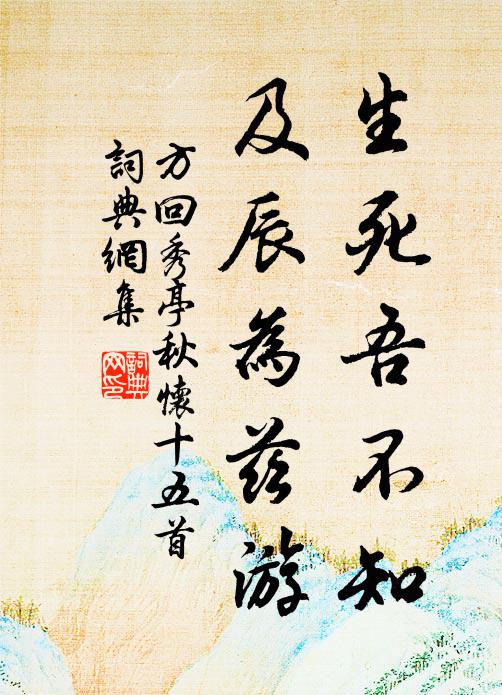 生死吾不知
及辰為茲游
方回秀亭秋懷十五首
詞典網集
詞典網印